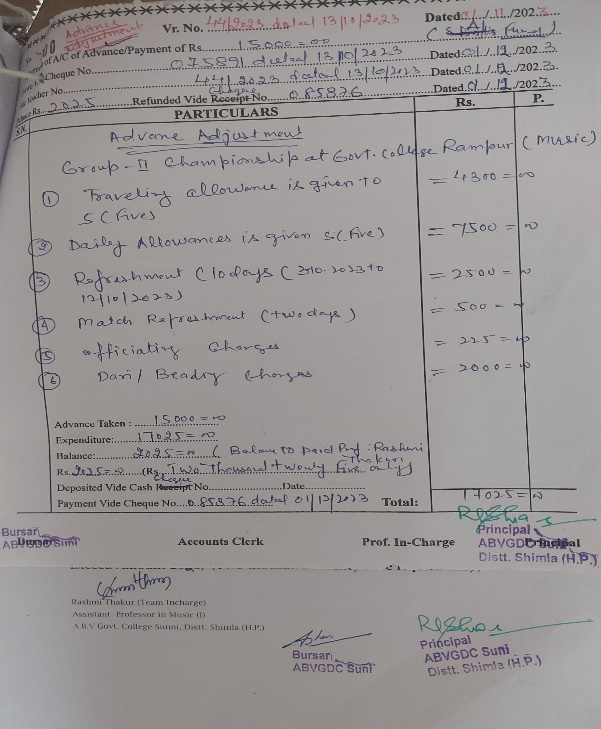 Advance Adjustment
Vr. No. 44/2023 dated 13/10/2023
Dated 1/11/2023
of A/C of Advance/Payment of Rs. 15000=00
Cheque No. 075891 dated 13/10/2023 Dated 01/12/2023
Voucher No. 44/2023 dated 13/10/2023 Dated 01/12/2023
Rs. 2025 Refunded Vide Receipt No. Cheque 085876 Dated 01/12/2023
S.N. PARTICULARS Rs. P.
Advane Adjustment
Group-II Championship at Govt. College Rampur (Music)
① Traveling allowance is given to = 4300=00
5 (Five)
② Dailey Allowances is given 5 (Five) = 7500=00
③ Refreshment (10 days (3-10-2023 to = 2500=00
12/10/2023)
④ Match Refreshment (two days) = 500=00
⑤ officiating Charges = 225=00
⑥ Dari/Beadry Charges = 2000=00
Advance Taken : 15000=00
Expenditure: 17025=00
Balance: 2025=00 (Balane to paid Prof. Rashmi Thakur)
Rs. 2025=00 (Rs. Two thousand twenty five only)
Deposited Vide Cash Receipt No. Cheque Date
Payment Vide Cheque No. 085876 dated 01/12/2023 Total: 17025=00
Bursar Accounts Clerk Prof. In-Charge Principal
Bursar
ABVGDC Suni
Principal
ABVGDC Suni
Distt. Shimla (H.P.)
Rashmi Thakur (Team Incharge)
Assistant Professor in Music (I)
A.B.V Govt. College Sunni, Distt. Shimla (H.P.)
Bursar
ABVGDC Suni
Principal
ABVGDC Suni
Distt. Shimla (H.P.)